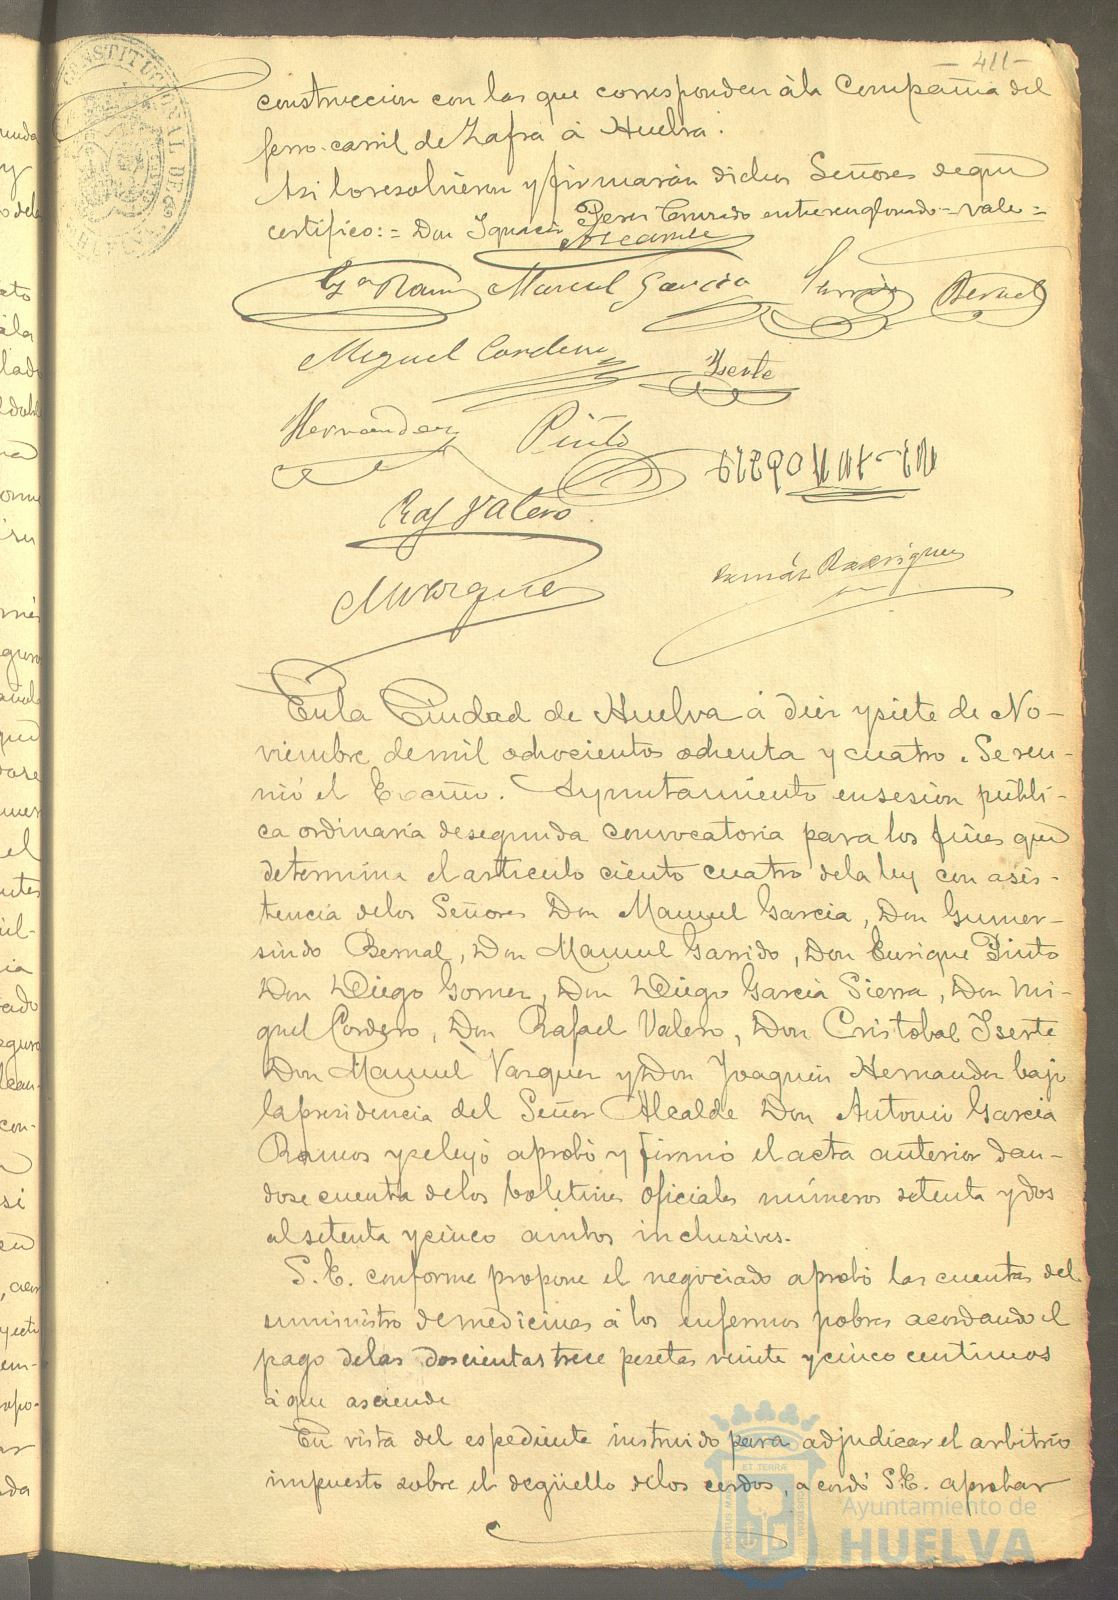 - 411 -
construccion con las que corresponden ála Compañia del
ferro-carril de Zafra á Huelva.
Asi loresolvieron y firmarán dichos Señores deque
certifico: = Don Ignacio Perez entrerenglonado = vale =
Gª Ramos Manuel Garcia Bernal
Miguel Cordero Iserte
Hernandez Pinto
Raf Valero
Marquez Tomás Rodriguez
Enla Ciudad de Huelva á diez ysiete de No-
viembre demil ochocientos ochenta y cuatro. Sereu-
nió el Excmo. Ayuntamiento ensesion públi-
ca ordinaria desegunda convocatoria para los fines que
determina el articulo ciento cuatro dela ley con asis-
tencia delos Señores Don Manuel Garcia, Don Gumer-
sindo Bernal, Don Manuel Garrido, Don Enrique Pinto
Don Diego Gomez, Don Diego Garcia Sierra, Don Mi-
guel Cordero, Don Rafael Valero, Don Cristobal Iserte
Don Manuel Vazquez y Don Joaquin Hernandez bajo
lapresidencia del Señor Alcalde Don Antonio Garcia
Ramos yseleyó aprobó y firmó el acta anterior dan-
dose cuenta delos boletines oficiales números setenta ydos
alsetenta ycinco ambos inclusives.
S.E. conforme propone el negociado aprobó las cuentas del
suministro demedicinas á los enfermos pobres acordando el
pago delas doscientas trece pesetas veinte ycinco centimos
á que asciende
En vista del espediente instruido para adjudicar el arbitrio
impuesto sobre el degüello delos cerdos, acordó S.E. aprobar
Ayuntamiento de
HUELVA